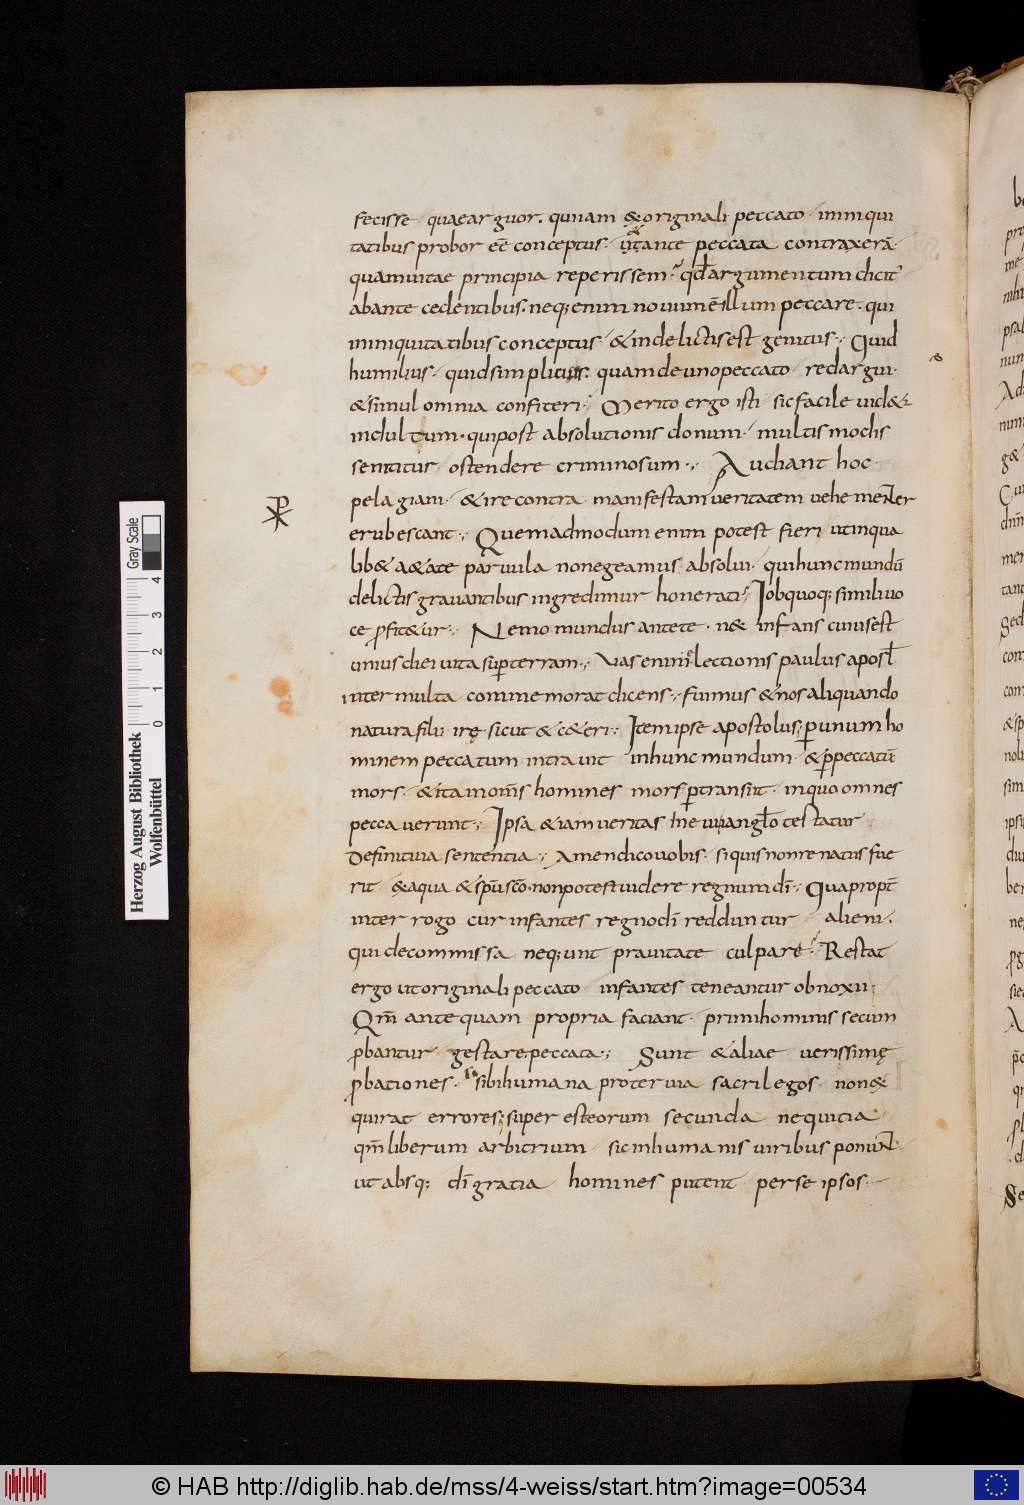 fecisse quaearguor. quniam &originali peccato inniqui
tatibus probor eē conceptus. ut ante peccata contraxerā
quamuitae principia reperissem. qd argumentum dicit
abante cedentibus. neq; enim nouum ē illum peccare. qui
ininiquitatibus conceptus &indelictis est genitus; Quid
humilius. quid simplicius. quam de uno peccato redargui.
&simul omnia confiteri; Merito ergo isti sic facile uid&
indultum. qui post absolutionis donum. multis modis
sentitur ostendere criminosum; Audiant hoc
pelagiani. &ire contra manifestam ueritatem uehementer
erubescant; Quemadmodum enim potest fieri utinqua
lib& a&ate paruula non egeamus absolui. qui hunc mundū
delictis grauantibus ingredimur honerati; Iob quoq; simili uo
ce profit&ur; Nemo mundus ante te. n& infans cuius est
unius diei uita super terram; Uas enim electionis paulus apostl
inter multa commemorat dicens; fuimus &nos aliquando
natura filii irę sicut &c&eri; Item ipse apostolus; per unum ho
minem peccatum intrauit inhunc mundum &perpeccatū
mors. &ita inomīs homines mors pertransiit. inquo omnes
peccauerunt; Ipsa &iam ueritas
Definitiua sententia; Amen dico uobis. siquis non renatus fue
rit &aqua &spū scō. non potest uidere regnum dī; Quapropt
interrogo cur infantes regno dī redduntur alieni.
qui decommissa neq;unt prauitate culpare. Restat
ergo ut originali peccato infantes teneantur obnoxii;
Qm antequam propria faciant. primi hominis secum
probantur gestare peccata; Sunt &aliae uerissimę
probationes. sibi humana proteruia sacrilegos non&
quirat errores; super est eorum secunda nequitia
qm liberum arbitrium sic inhumanis uiribus ponunt
ut absq; dī gratia homines putent per se ipsos
Herzog August Bibliothek
Wolfenbüttel
Gray Scale
0 1 2 3 4
© HAB http://diglib.hab.de/mss/4-weiss/start.htm?image=00534